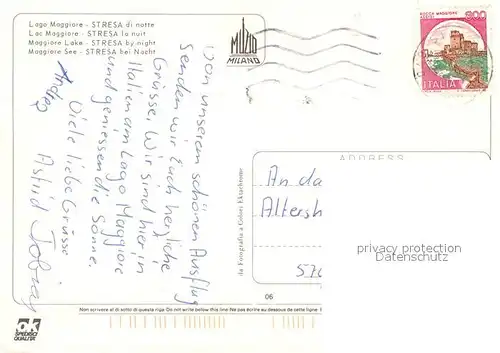 Lago Maggiore - STRESA di notte
Lac Majeure - STRESA la nuit
Maggiore Lake - STRESA by night
Maggiore See - STRESA bei Nacht
MUZIO
MILANO
ROCCA MAGGIORE
ASSISI
800
ITALIA
Von unserem schönen Ausflug
senden wir Euch herzliche
Grüsse. Wir sind hier in
Italien am Lago Maggiore
und geniessen die Sonne.
Viele liebe Grüsse
Astrid Tobias
Andrea
da Fotografia a Colori Ektachrome
ADDRESS
An da
Altersh
570
privacy protection
Datenschutz
06
Non scrivere al di sotto di questa riga Do not write below this line Ne pas écrire au dessous de cette ligne
OK
SPEDISCI
QUALITA'